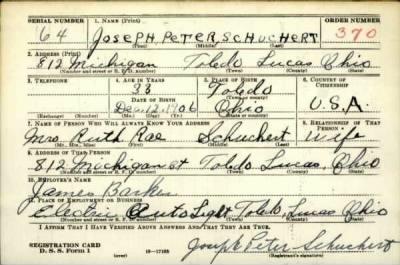 SERIAL NUMBER 1. NAME (Print) ORDER NUMBER
64 JOSEPH PETER SCHUCHERT 370
(First) (Middle) (Last)
2. ADDRESS (Print)
812 Michigan Toledo Lucas Ohio
(Number and street or R. F. D. number) (Town) (County) (State)
3. TELEPHONE 4. AGE IN YEARS 5. PLACE OF BIRTH 6. COUNTRY OF CITIZENSHIP
33 Toledo
DATE OF BIRTH (Town or county)
Dec. 12, 1906 Ohio U.S.A.
(Exchange) (Number) (Mo.) (Day) (Yr.) (State or country)
7. NAME OF PERSON WHO WILL ALWAYS KNOW YOUR ADDRESS 8. RELATIONSHIP OF THAT PERSON
Mrs Ruth Rae Schuchert Wife
(Mr., Mrs., Miss) (First) (Middle) (Last)
9. ADDRESS OF THAT PERSON
812 Michigan St Toledo Lucas, Ohio
(Number and street or R. F. D. number) (Town) (County) (State)
10. EMPLOYER'S NAME
James
11. PLACE OF EMPLOYMENT OR BUSINESS
Electric Auto Light Toledo, Lucas Ohio
(Number and street or R. F. D. number) (Town) (County) (State)
I AFFIRM THAT I HAVE VERIFIED ABOVE ANSWERS AND THAT THEY ARE TRUE.
REGISTRATION CARD
D. S. S. Form 1 16-17105 Joseph Peter Schuchert
(Registrant's signature)